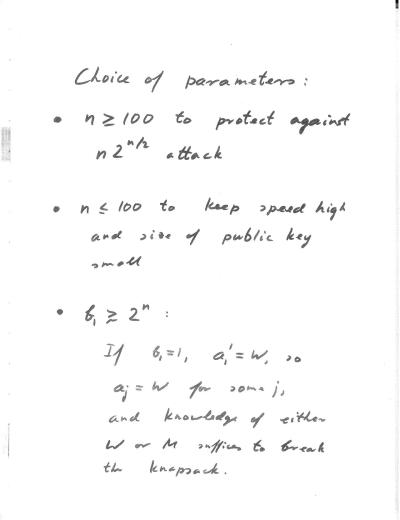 Choice of parameters:
• n ≥ 100 to protect against
n 2^{n/2} attack
• n ≤ 100 to keep speed high
and size of public key
small
• b₁ ≳ 2ⁿ :
If b₁=1, a₁'=W, so
aⱼ = W for some j,
and knowledge of either
W or M suffices to break
the knapsack.